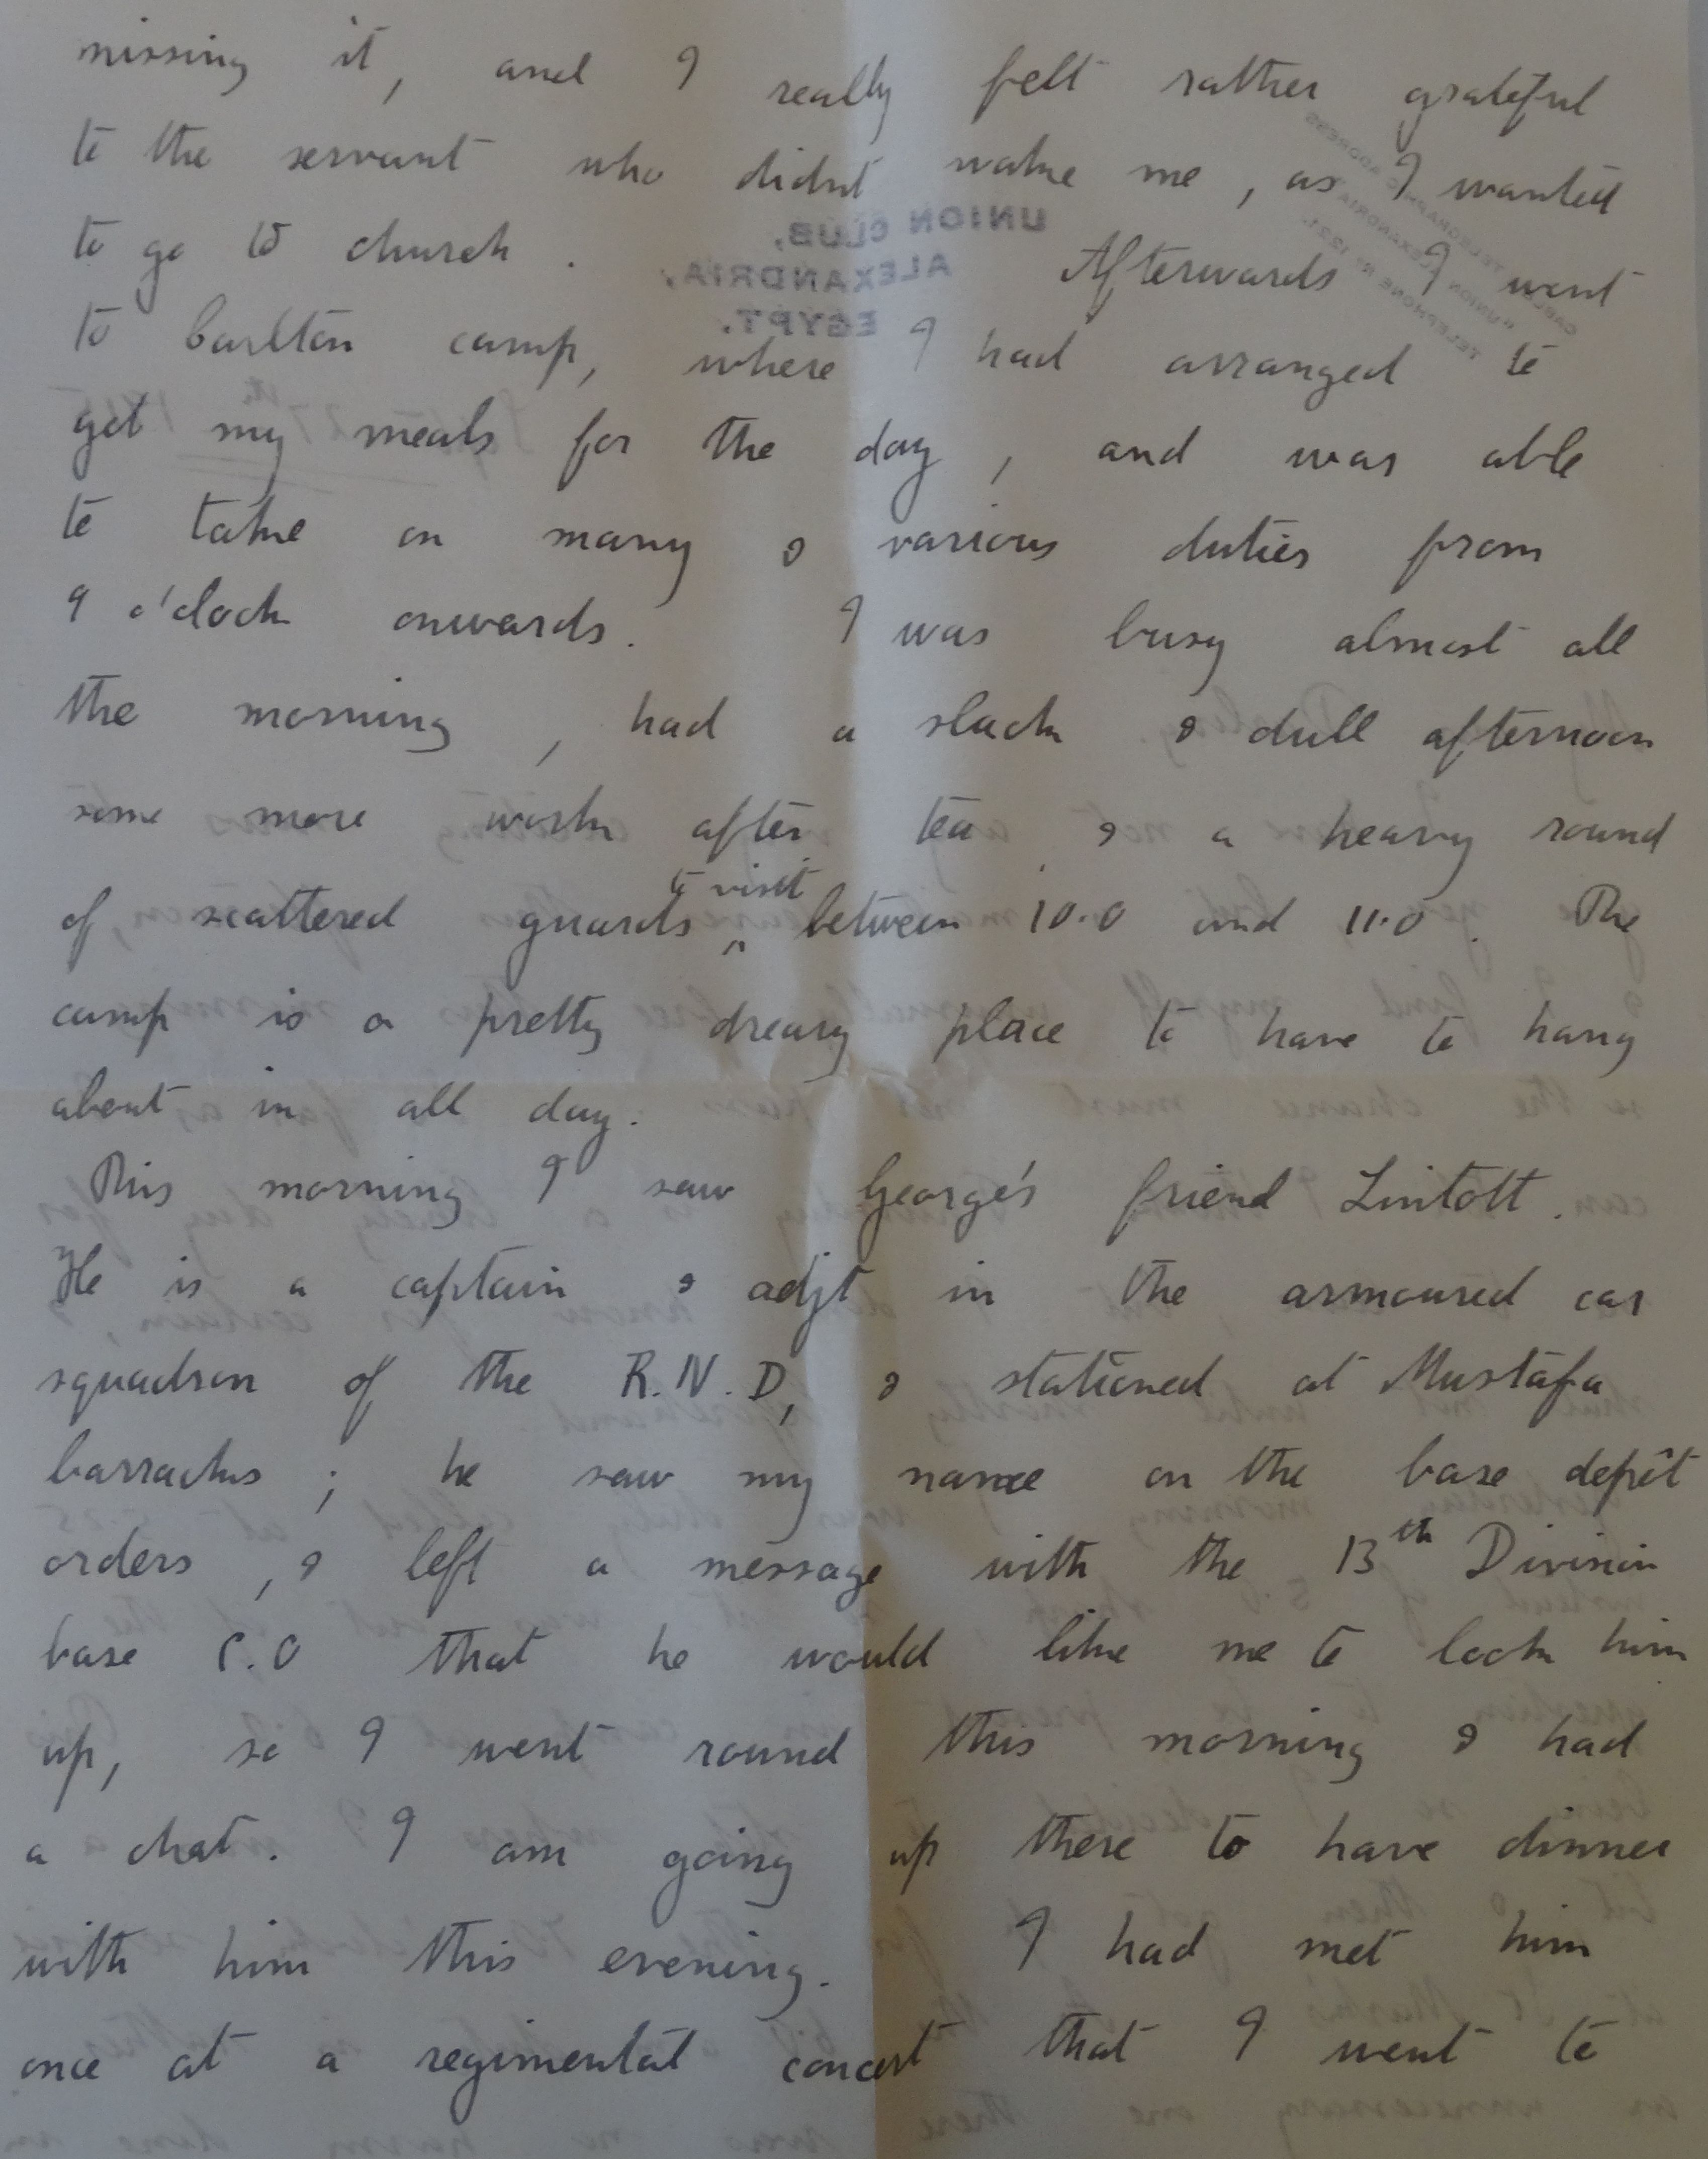 missing it, and I really felt rather grateful
to the servant who didnt wake me, as I wanted
to go to church. Afterwards I went
to Carlton camp, where I had arranged to
get my meals for the day, and was able
to take on many & various duties from
9 o'clock onwards. I was busy almost all
the morning, had a slack & dull afternoon
some more work after tea, & a heavy round
of scattered guards to visit between 10.0 and 11.0. The
camp is a pretty dreary place to have to hang
about in all day.
This morning I saw George's friend Lintott.
He is a captain & adjt in the armoured car
squadron of the R.N.D, & stationed at Mustafa
barracks; he saw my name on the base depôt
orders, & left a message with the 13th Division
base C.O that he would like me to look him
up, so I went round this morning & had
a chat. I am going up there to have dinner
with him this evening. I had met him
once at a regimental concert that I went to
UNION CLUB,
ALEXANDRIA,
EGYPT.